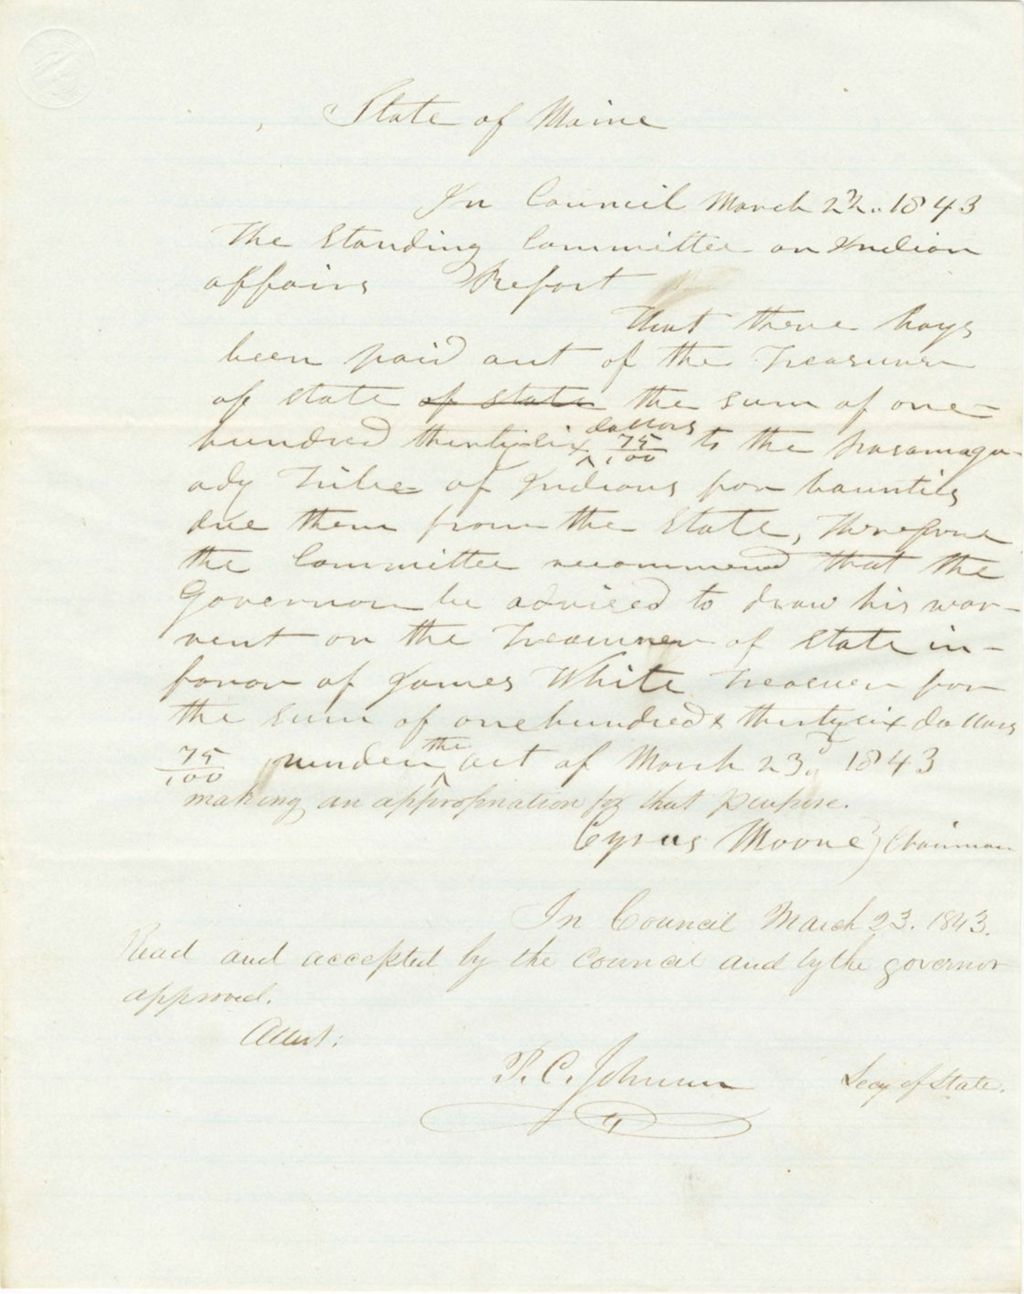 State of Maine
In Council March 22. 1843
The Standing Committee on Indian
affairs Report
That there hays
been paid out of the Treasurer
of State of State the sum of one-
hundred thirty six dollars 75/100 to the Passamaqu-
ody Tribe of Indians for bounties
due them from the State, Therefore
the Committee recommend that the
Governor be advised to draw his war-
rent on the Treasurer of State in-
favor of James White Treasurer for
the sum of one hundred & thirty six dollars
75/100 under the act of March 23d 1843
making an appropriation for that purpose.
Cyrus Moore, Chairman
In Council March 23. 1843.
Read and accepted by the Council and by the governor
approved.
Attest:
P. C. Johnson Secy of State.